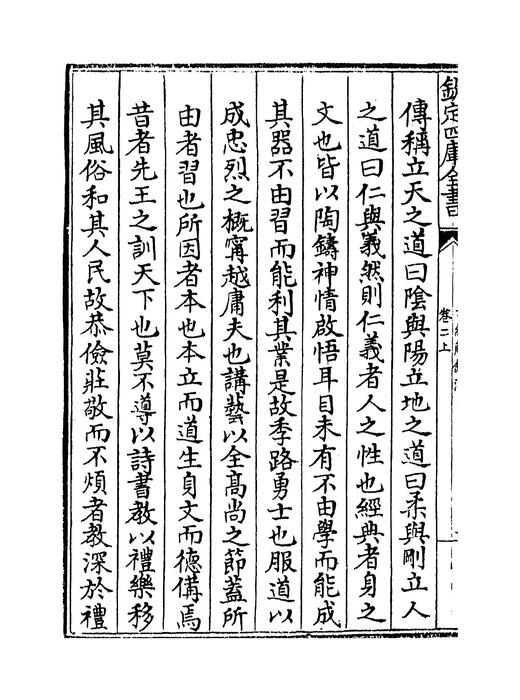 欽定四庫全書
卷二上
傳稱立天之道曰陰與陽立地之道曰柔與剛立人
之道曰仁與義然則仁義者人之性也經典者身之
文也皆以陶鑄神情啟悟耳目未有不由學而能成
其器不由習而能利其業是故季路勇士也服道以
成忠烈之概甯越庸夫也講藝以全髙尚之節蓋所
由者習也所因者本也本立而道生身文而德備焉
昔者先王之訓天下也莫不導以詩書教以禮樂移
其風俗和其人民故恭儉莊敬而不煩者教深於禮